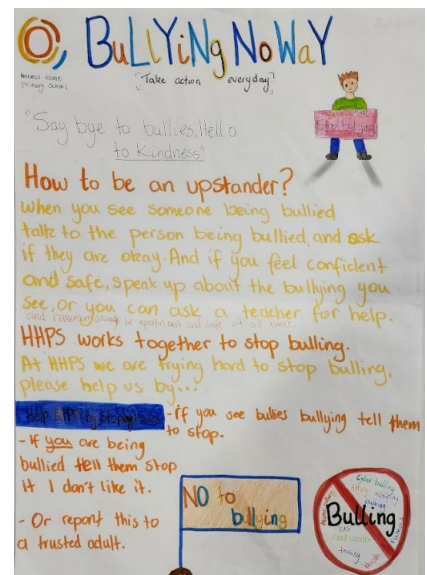 BuLLYiNg NoWaY
"Take action everyday"
Primary School
"Say bye to bullies, Hello
to Kindness"
Stop bullying
How to be an upstander?
When you see someone being bullied
talk to the person being bullied, and ask
if they are okay. And if you feel confident
and safe, speak up about the bullying you
see, or you can ask a teacher for help.
and remember always be and safe at all times
HHPS works together to stop bulling.
At HHPS we are trying hard to stop bulling,
please help us by...
Help HHPS by stopping bullies
-if you see bullies bullying tell them
to stop.
- If you are being
bullied tell them stop
it I don't like it.
- Or report this to
a trusted adult.
NO to
bullying
Cyber bulling
pushing
Bulling
mean words
teasing